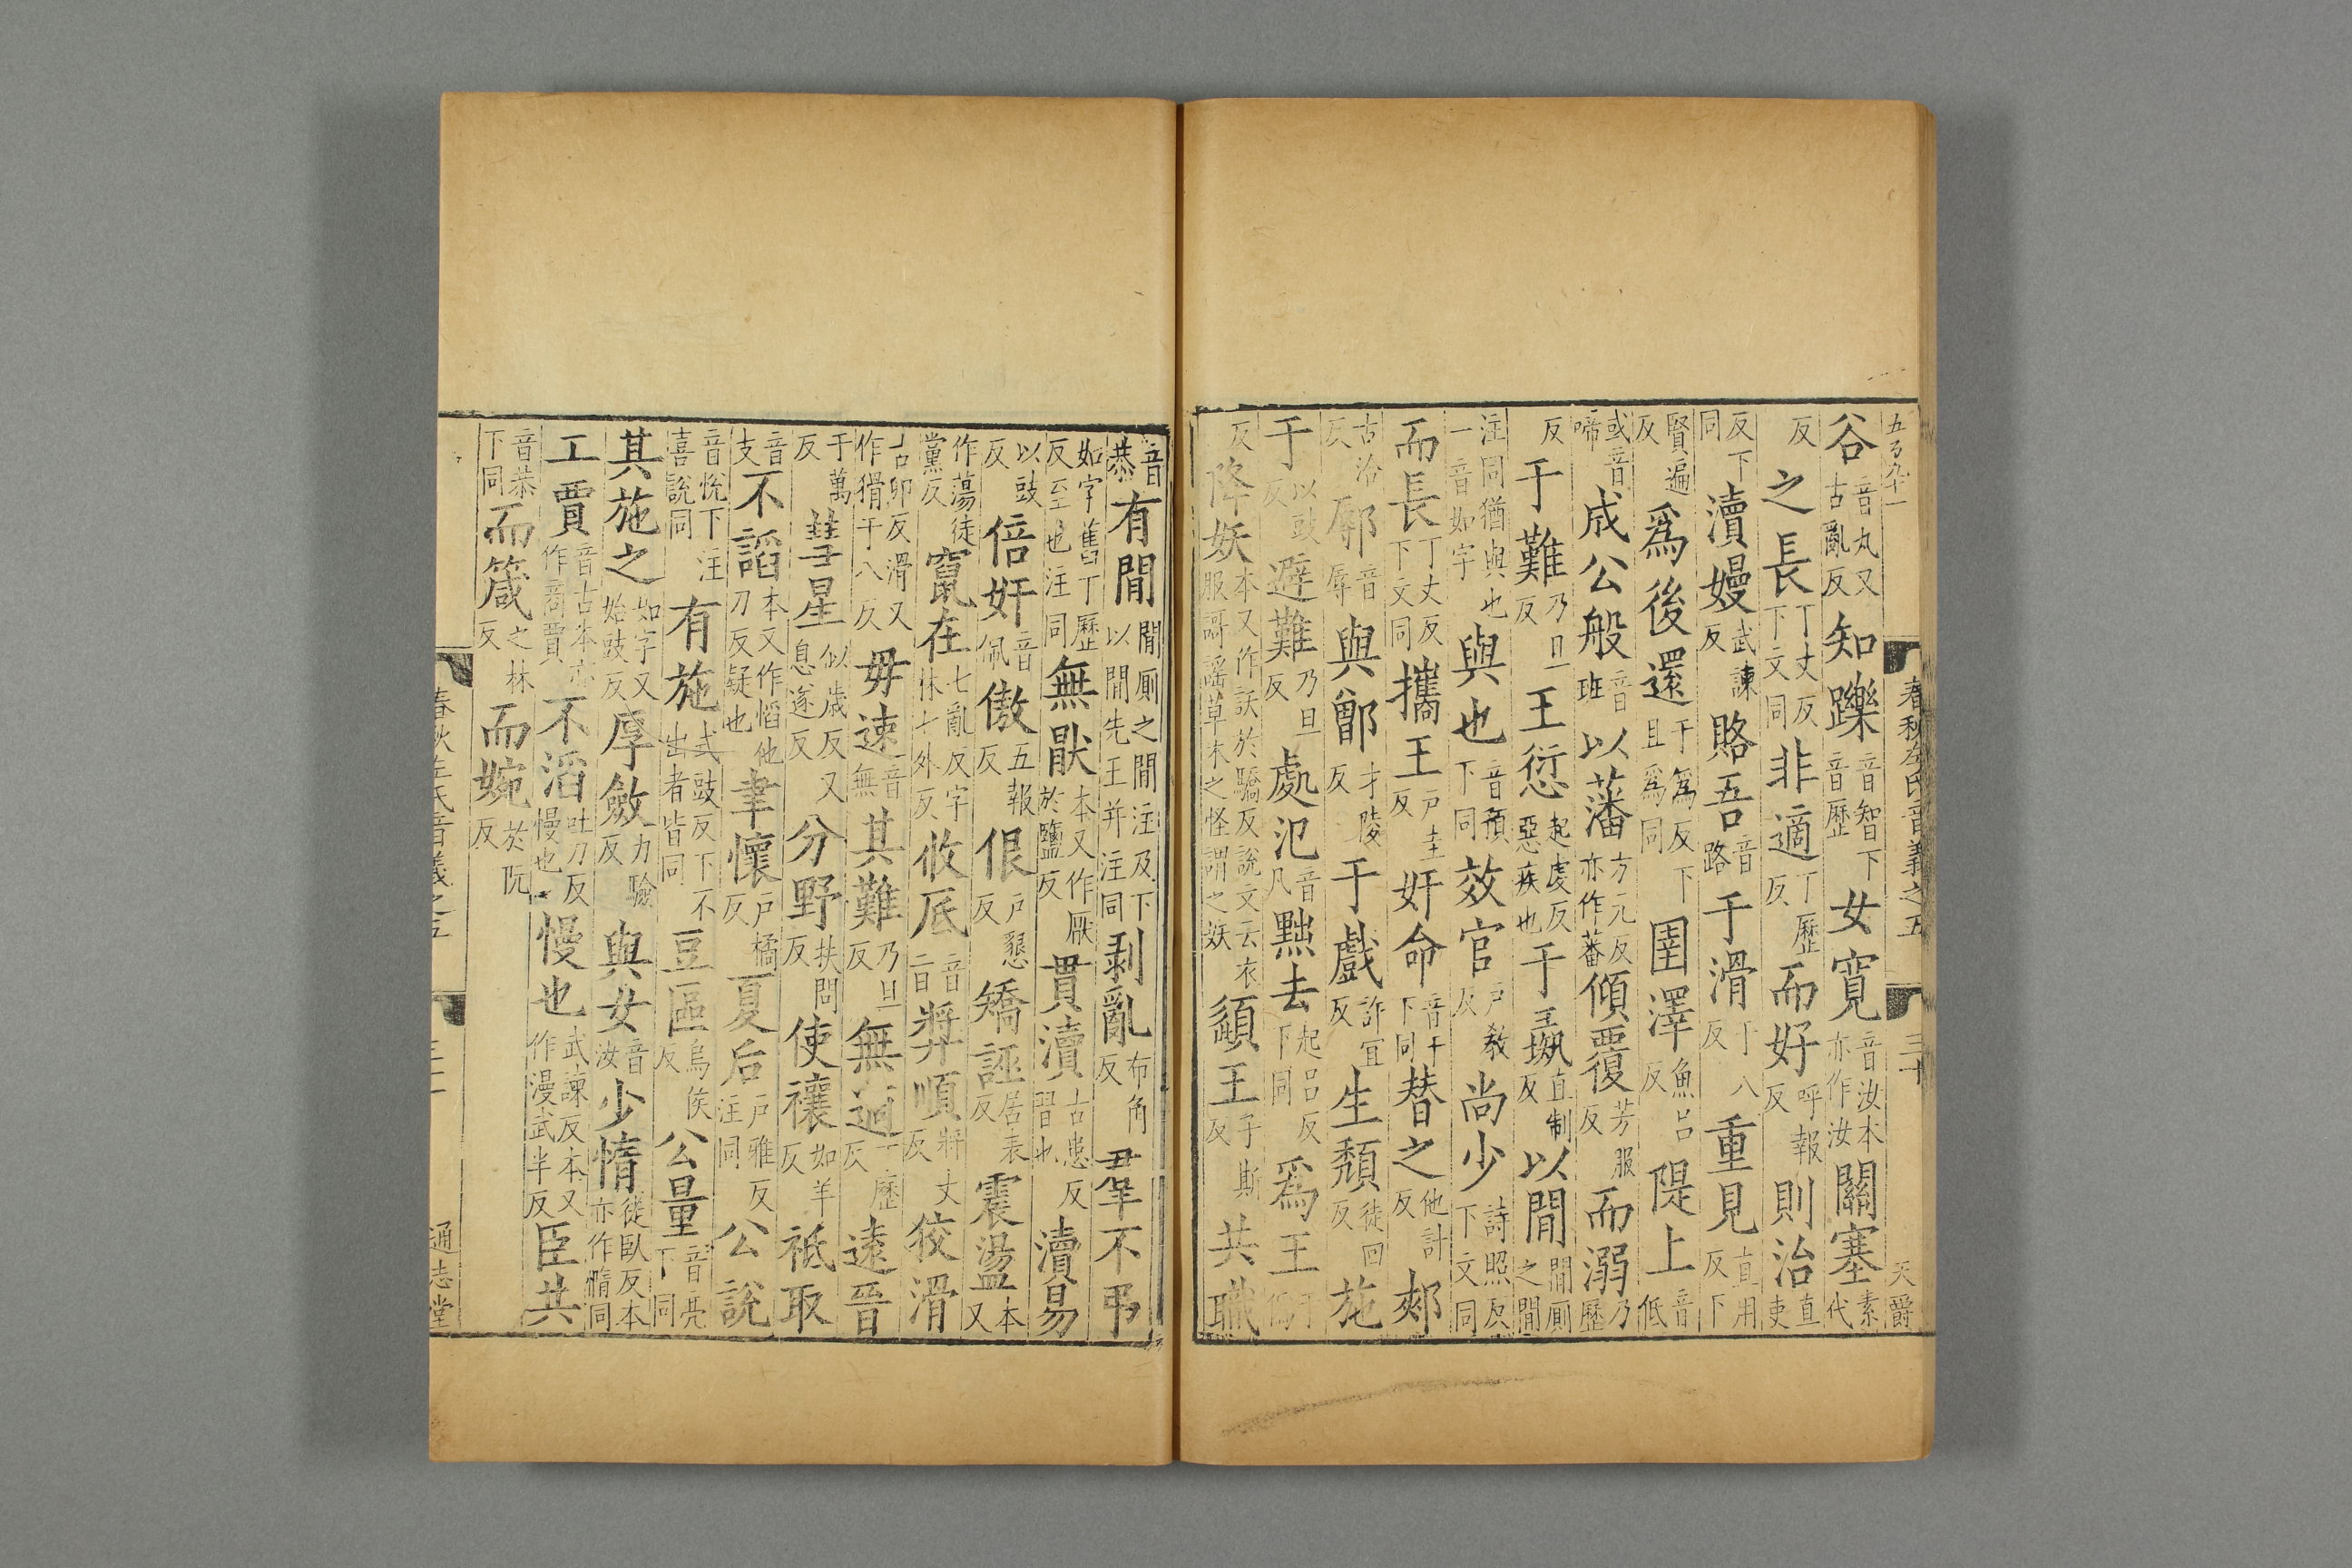 五百九十一 春秋左氏音義之五 三十 天爵
谷音丸又古亂反知躒音智下音歷女寬音汝本亦作汝關塞素代
反之長丁丈反下文同非適丁歷反而好呼報反則治直吏
反下同瀆嫚武諫反賂吾音路于滑于八反重見直用反下
賢遍反爲後還于爲反下且爲同圉澤魚呂反隄上音低
或音啼成公般音班以藩方元反亦作蕃傾覆芳服反而溺乃歷
反于難乃旦反王愆起虔反惡疾也于彘直制反以閒閒厠之閒
注同猶與也一音如字與也音預下同效官戶教反尚少詩照反下文同
而長丁丈反下文同攜王戶圭反奸命音干下同替之他計反郟
古洽反鄏音辱與鄫才陵反于戲許宜反生頹徒回反施
于以豉反避難乃旦反處氾音凡黜去起呂反下同爲王于僞
反降妖本又作訞於驕反說文云衣服謌謠草木之怪謂之䄏頿王子斯反共職
音恭有閒閒厠之閒注及下以閒先王并注同剥亂布角反羣不弔
如字舊丁歷反至也注同無厭本又作厭於鹽反貫瀆古患反習也瀆易
以豉反倍奸音佩傲五報反佷戶懇反矯誣居表反震盪本又
作蕩徒黨反竄在七亂反字林七外反攸厎音旨弉順將丈反狡滑
古卯反滑又作猾于八反毋速音無其難乃旦反無適丁歷反遠晉
于萬反彗星似歲反又息遂反分野扶問反使禳如羊反祗取
音支不謟本又作慆他刀反疑也聿懷戶橘反夏后戶雅反注同公說
音悅下注喜說同有施式豉反下不出者皆同豆區烏侯反公量音亮下同
其施之如字又始豉反厚斂力驗反與女音汝少惰徒臥反本亦作憜同
工賈音古本亦作商賈不滔吐刀反慢也慢也武諫反本又作漫武半反臣共
音恭下同而箴之林反而婉於阮反
春秋左氏音義之五 三十一 通志堂